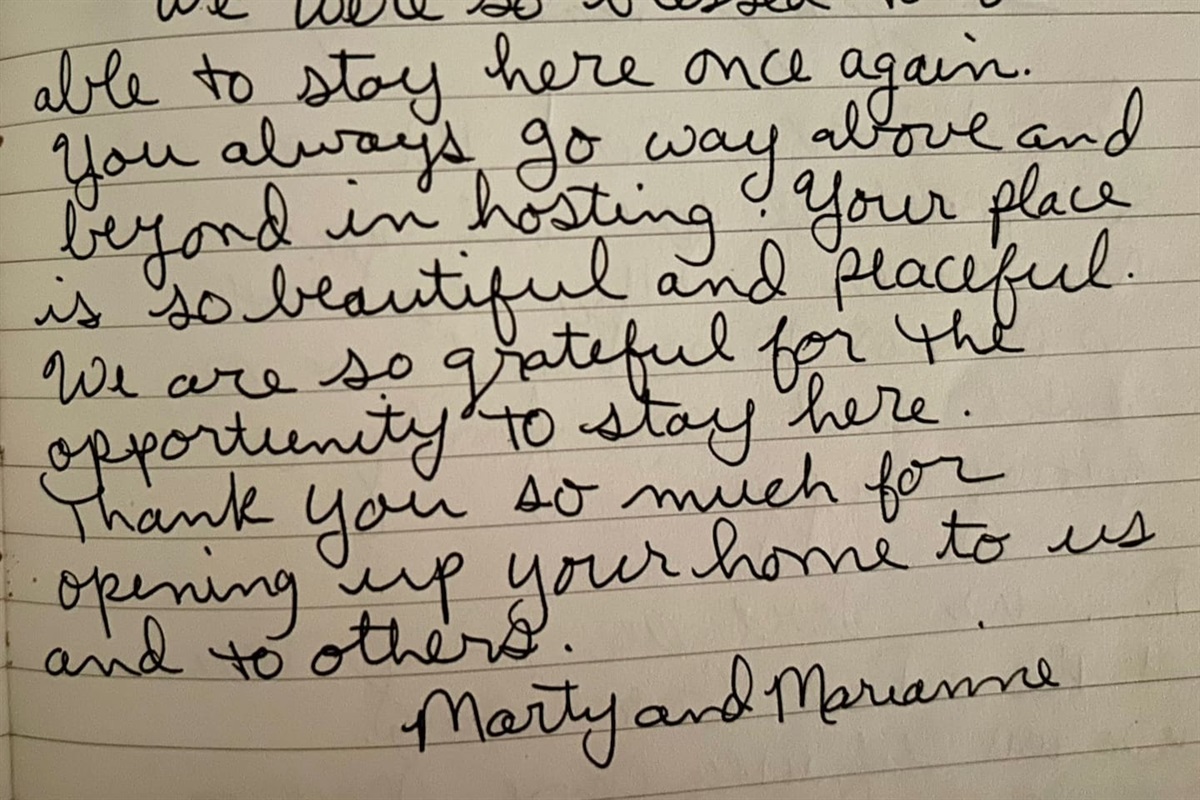 We were so blessed to
able to stay here once again.
You always go way above and
beyond in hosting! Your place
is so beautiful and peaceful.
We are so grateful for the
opportunity to stay here.
Thank you so much for
opening up your home to us
and to others.
Marty and Marianne